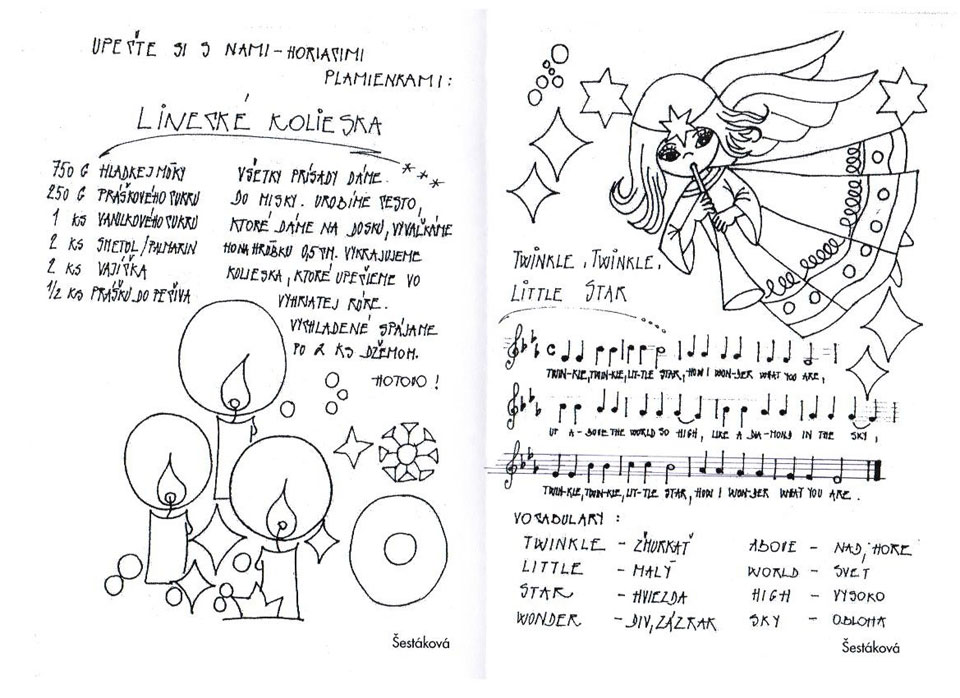 UPEČTE SI S NAMI - HORIACIMI
PLAMIENKAMI:
LINECKÉ KOLIESKA
750 G HLADKEJ MÚKY
250 G PRÁŠKOVÉHO CUKRU
1 KS VANILKOVÉHO CUKRU
2 KS SMETOL/PALMARIN
2 KS VAJÍČKA
1/2 KS PRÁŠKU DO PEČIVA
VŠETKY PRÍSADY DÁME
DO MISKY. UROBÍME CESTO,
KTORÉ DÁME NA DOSKU, VYVAĽKÁME
HO NA HRÚBKU 0,5 CM. VYKRAJUJEME
KOLIESKA, KTORÉ UPEČIEME VO
VYHRIATEJ RÚRE.
VYCHLADENÉ SPÁJAME
PO 2 KS DŽEMOM.
HOTOVO!
Šestáková
TWINKLE, TWINKLE,
LITTLE STAR
TWIN-KLE, TWIN-KLE, LIT-TLE STAR, HOW I WON-DER WHAT YOU ARE,
UP A-BOVE THE WORLD SO HIGH, LIKE A DIA-MOND IN THE SKY,
TWIN-KLE, TWIN-KLE, LIT-TLE STAR, HOW I WON-DER WHAT YOU ARE.
VOCABULARY:
TWINKLE - ŽMURKAŤ
LITTLE - MALÝ
STAR - HVIEZDA
WONDER - DIV, ZÁZRAK
ABOVE - NAD, HORE
WORLD - SVET
HIGH - VYSOKO
SKY - OBLOHA
Šestáková